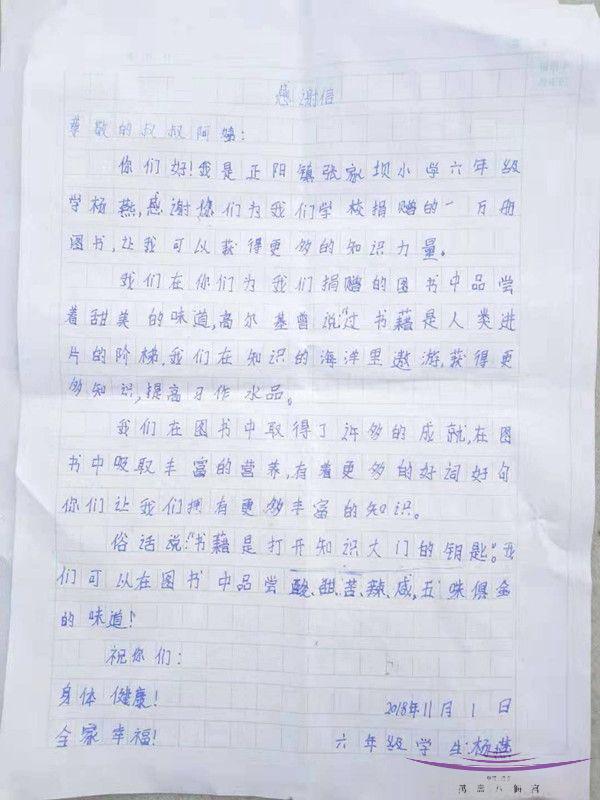 感谢信
尊敬的叔叔阿姨:
你们好!我是正阳镇张家坝小学六年级
学杨燕,感谢您们为我们学校捐赠的一万册
图书,让我可以获得更多的知识力量。
我们在你们为我们捐赠的图书中品尝
着甜美的味道,高尔基曾说过"书藉是人类进
片的阶梯,我们在知识的海洋里遨游,获得更
多知识,提高习作水品。
我们在图书中取得了许多的成就,在图
书中吸取丰富的营养,有着更多的好词好句
你们让我们拥有更多丰富的知识。
俗话说:"书藉是打开知识大门的钥匙。"我
们可以在图书中品尝酸、甜、苦、辣、咸,五味俱全
的味道!
祝你们:
身体健康!
2018年11月1日
全家幸福!
六年级学生:杨燕